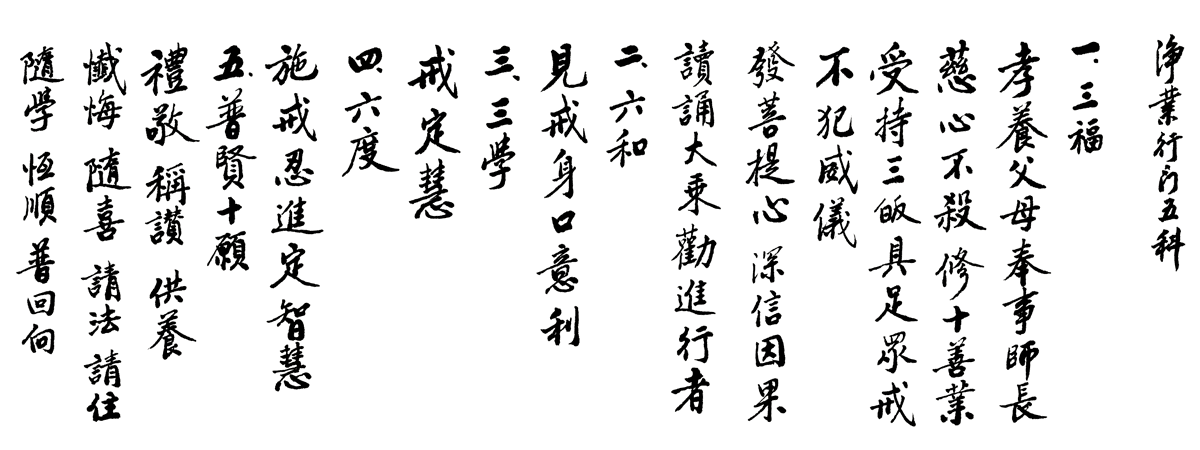 淨業行門五科
一.三福
孝養父母奉事師長
慈心不殺 修十善業
受持三皈具足眾戒
不犯威儀
發菩提心 深信因果
讀誦大乘勸進行者
二.六和
見戒身口意利
三.三學
戒定慧
四.六度
施戒忍進定智慧
五.普賢十願
禮敬 稱讃 供養
懺悔 隨喜 請法 請住
隨學 恆順 普回向